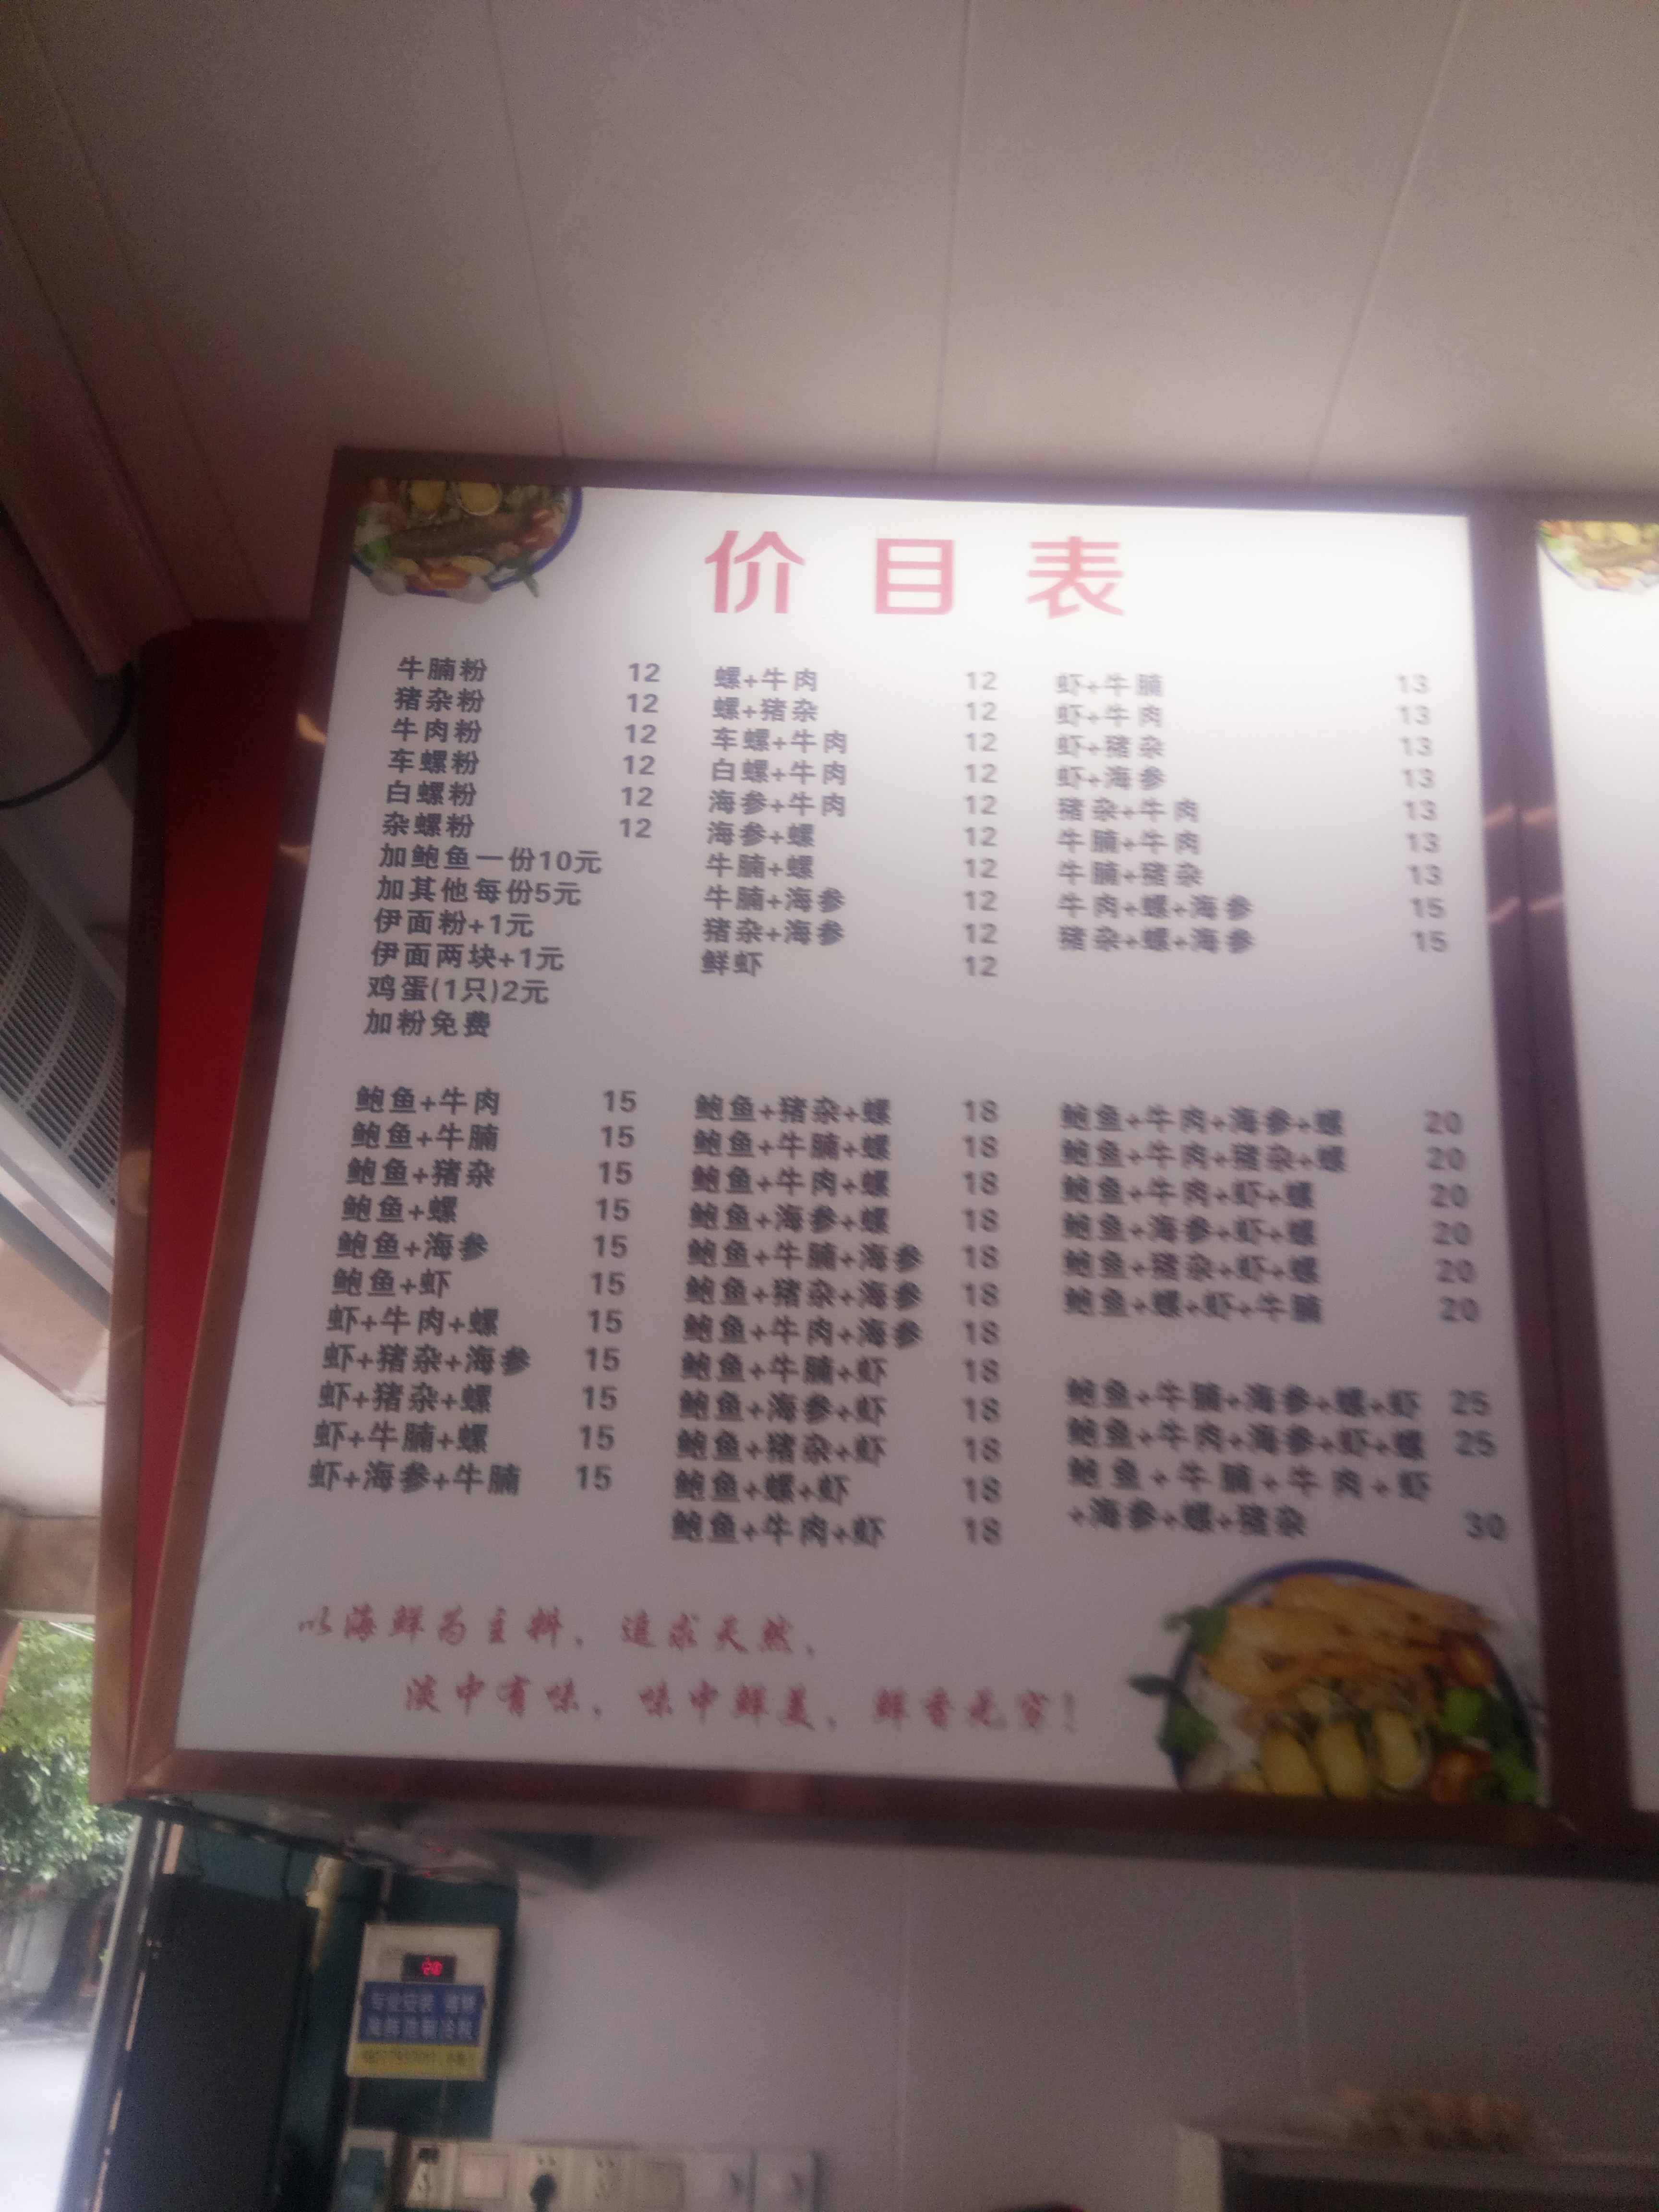 价目表
牛腩粉 12
猪杂粉 12
牛肉粉 12
车螺粉 12
白螺粉 12
杂螺粉 12
加鲍鱼一份10元
加其他每份5元
伊面粉+1元
伊面两块+1元
鸡蛋(1只)2元
加粉免费
螺+牛肉 12
螺+猪杂 12
车螺+牛肉 12
白螺+牛肉 12
海参+牛肉 12
海参+螺 12
牛腩+螺 12
牛腩+海参 12
猪杂+海参 12
鲜虾 12
虾+牛腩 13
虾+牛肉 13
虾+猪杂 13
虾+海参 13
猪杂+牛肉 13
牛腩+牛肉 13
牛腩+猪杂 13
牛肉+螺+海参 15
猪杂+螺+海参 15
鲍鱼+牛肉 15
鲍鱼+牛腩 15
鲍鱼+猪杂 15
鲍鱼+螺 15
鲍鱼+海参 15
鲍鱼+虾 15
虾+牛肉+螺 15
虾+猪杂+海参 15
虾+猪杂+螺 15
虾+牛腩+螺 15
虾+海参+牛腩 15
鲍鱼+猪杂+螺 18
鲍鱼+牛腩+螺 18
鲍鱼+牛肉+螺 18
鲍鱼+海参+螺 18
鲍鱼+牛腩+海参 18
鲍鱼+猪杂+海参 18
鲍鱼+牛肉+海参 18
鲍鱼+牛腩+虾 18
鲍鱼+海参+虾 18
鲍鱼+猪杂+虾 18
鲍鱼+螺+虾 18
鲍鱼+牛肉+虾 18
鲍鱼+牛肉+海参+螺 20
鲍鱼+牛肉+猪杂+螺 20
鲍鱼+牛肉+虾+螺 20
鲍鱼+海参+虾+螺 20
鲍鱼+猪杂+虾+螺 20
鲍鱼+螺+虾+牛腩 20
鲍鱼+牛腩+海参+螺+虾 25
鲍鱼+牛肉+海参+虾+螺 25
鲍鱼+牛腩+牛肉+虾
+海参+螺+猪杂 30
以海鲜为主料，追求天然，
淡中有味，味中鲜美，鲜香无穷！
专业安装